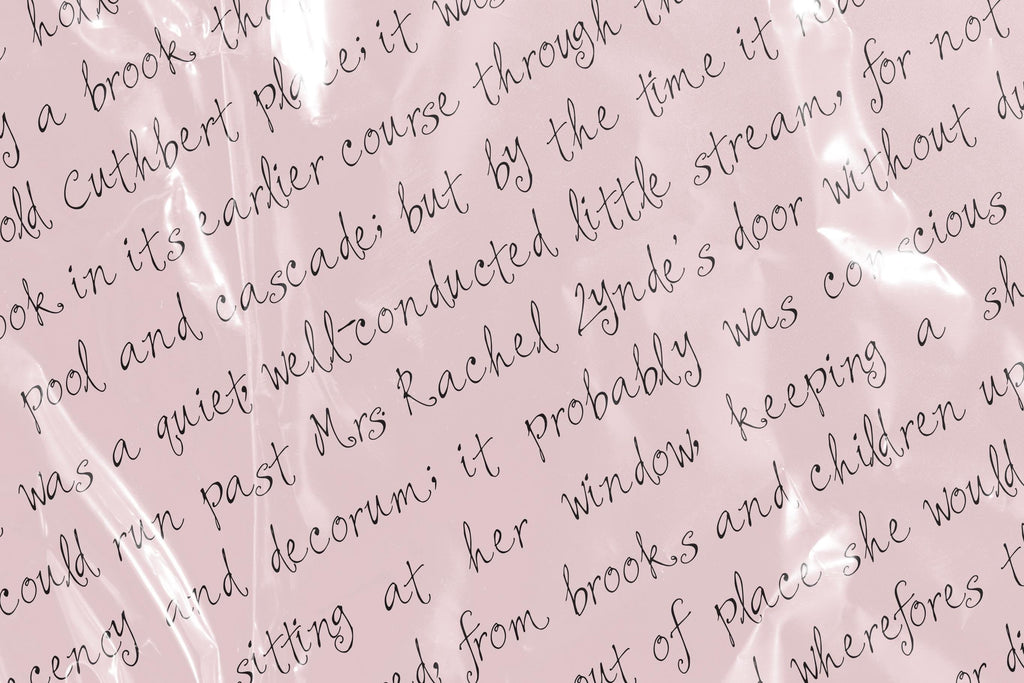 a brook, tha
old Cuthbert place; it was
ook in its earlier course through th
pool and cascade; but by the time it rea
was a quiet, well-conducted little stream, for not
could run past Mrs. Rachel Lynde's door without du
cency and decorum; it probably was conscious
sitting at her window, keeping a sh
ed, from brooks and children up
out of place she would
wherefores th
or di